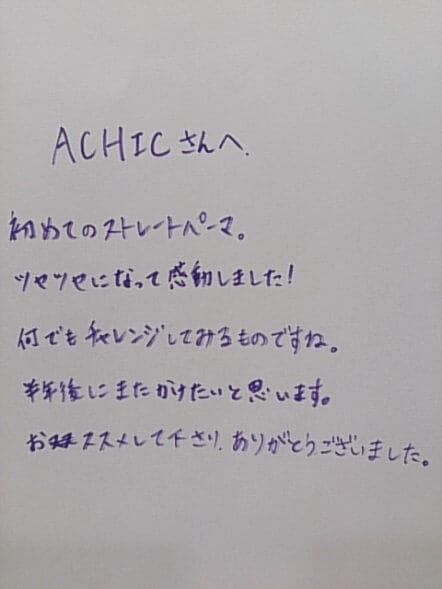 ACHICさんへ.
初めてのストレートパーマ。
ツヤツヤになって感動しました!
何でもチャレンジしてみるものですね。
半年後にまたかけたいと思います。
おススメして下さり、ありがとうございました。